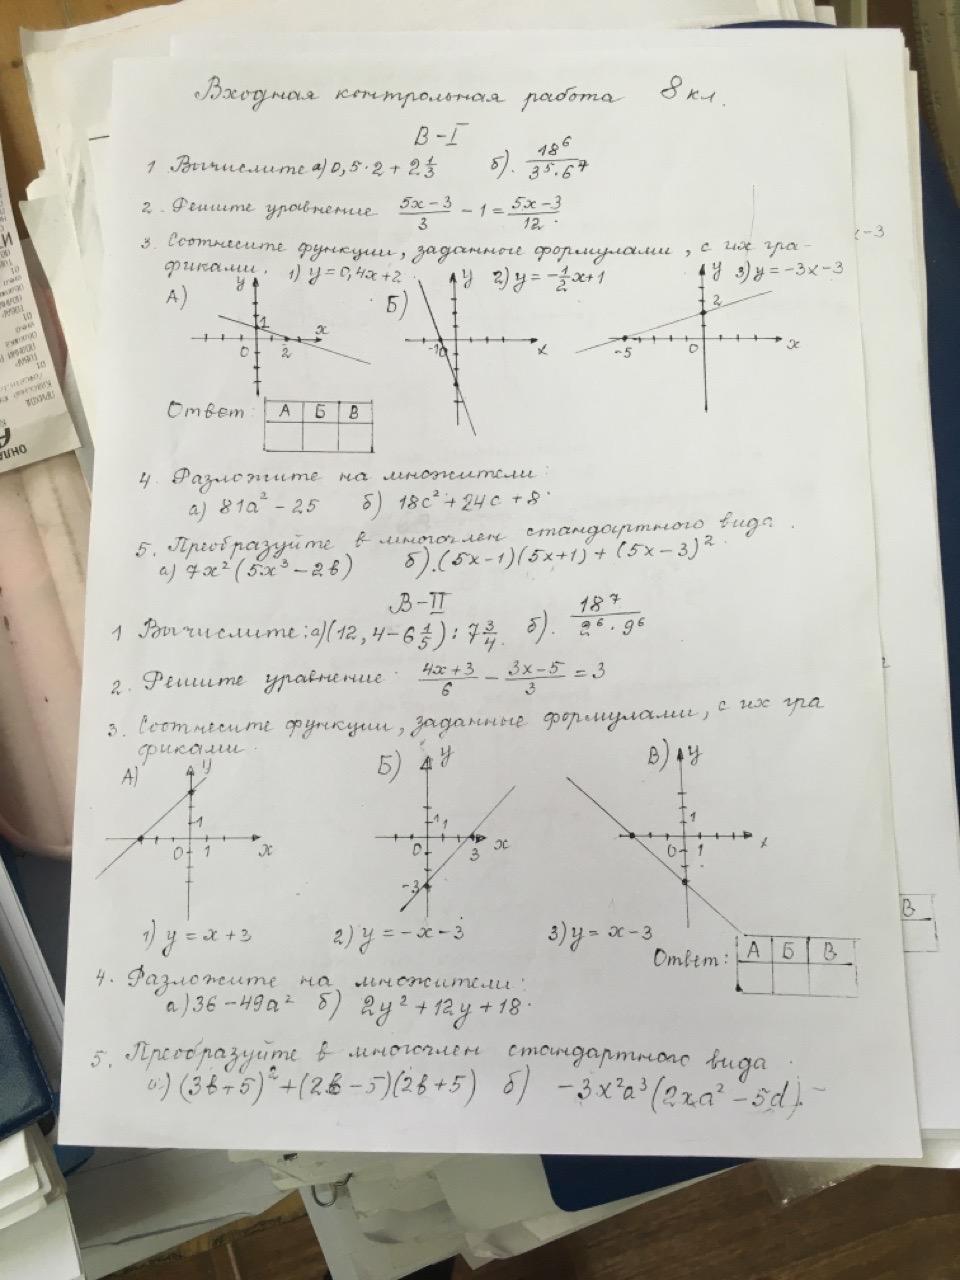 Входная контрольная работа 8 кл.
В-I
1 Вычислите а) 0,5·2 + 2 1/3 б). 18⁶/(3⁵·6⁷)
2. Решите уравнение (5x-3)/3 - 1 = (5x-3)/12.
3. Соотнесите функции, заданные формулами, с их гра-
фиками. 1) y=0,4x+2 2) y=-1/2x+1 3) y=-3x-3
А) y 1 x 0 2
Б) y -1 0 x
y 2 -5 0 x
Ответ: А Б В
4. Разложите на множители:
а) 81a² - 25 б) 18c² + 24c + 8.
5. Преобразуйте в многочлен стандартного вида.
а) 7x²(5x³-2в) б). (5x-1)(5x+1) + (5x-3)².
В-II
1 Вычислите: а) (12,4-6 1/5) : 7 3/4. б). 18⁷/(2⁶·9⁶)
2. Решите уравнение. (4x+3)/6 - (3x-5)/3 = 3
3. Соотнесите функции, заданные формулами, с их гра
фиками.
А) y 1 0 1 x
Б) y 1 0 3 x -3
В) y 1 0 1 x
1) y = x+3 2) y = -x-3 3) y = x-3
Ответ: А Б В
4. Разложите на множители:
а) 36-49a² б) 2y²+12y+18.
5. Преобразуйте в многочлен стандартного вида.
а) (3в+5)²+(2в-5)(2в+5) б) -3x²a³(2xa²-5d).